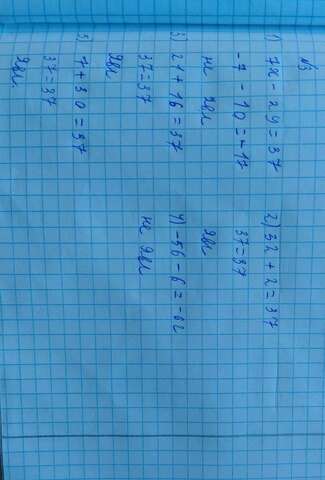 №3
1) 7x - 2y = 37
-7 - 10 = -17
не явл
2) 32 + 2 = 37
37 = 37
явл
3) 21 + 16 = 37
37 = 37
явл
4) -56 - 6 = -62
не явл
5) 7 + 30 = 37
37 = 37
явл